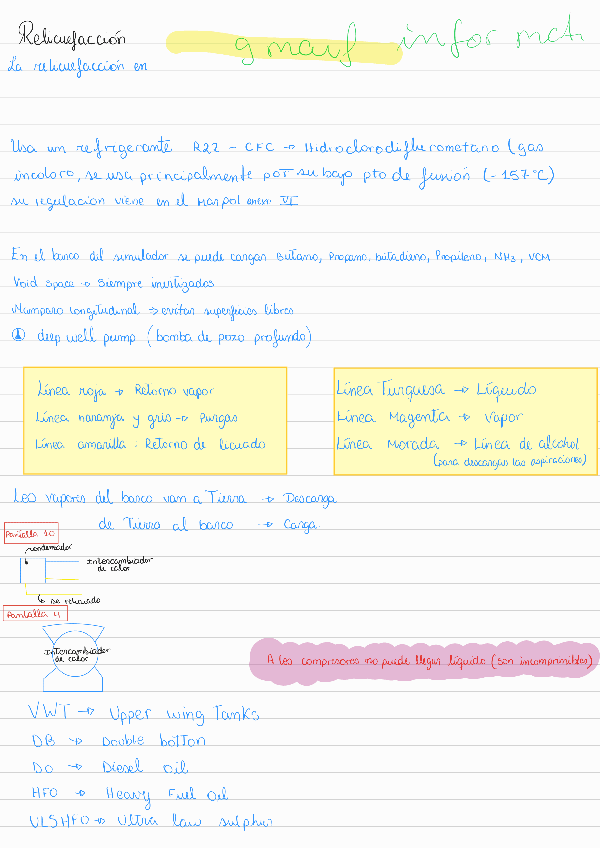 Relicuefacción
gmaif infor mat.
La relicuefacción en
Usa un refrigerante R22 - CFC → Hidroclorodifluormetano (gas
incoloro, se usa principalmente por su bajo pto de fusión (-157°C)
su regulacion viene en el Marpol anexo VI
En el barco del simulador se puede cargar Butano, Propano, butadieno, Propileno, NH3, VCM
Void space → Siempre inertizados
Mamparo longitudinal → evitar superficies libres
deep well pump (bomba de pozo profundo)
Línea roja → Retorno vapor
Línea naranja y gris → Purgas
Línea amarilla - Retorno de licuado
Línea Turquesa → Líquido
Línea Magenta → Vapor
Línea Morada → Línea de alcohol
(para descargar las aspiraciones)
Los vapores del barco van a Tierra → Descarga
de Tierra al barco → Carga
Pantalla 10
condensador
Intercambiador
de calor
↳ se relicuado
Pantalla 4
Intercambiador
de calor
A los compresores no puede llegar líquido (son incomprimibles)
VWT → Upper wing Tanks
DB → Double botton
DO → Diesel oil
HFO → Heavy Fuel Oil
ULSHFO → Ultra law sulphur